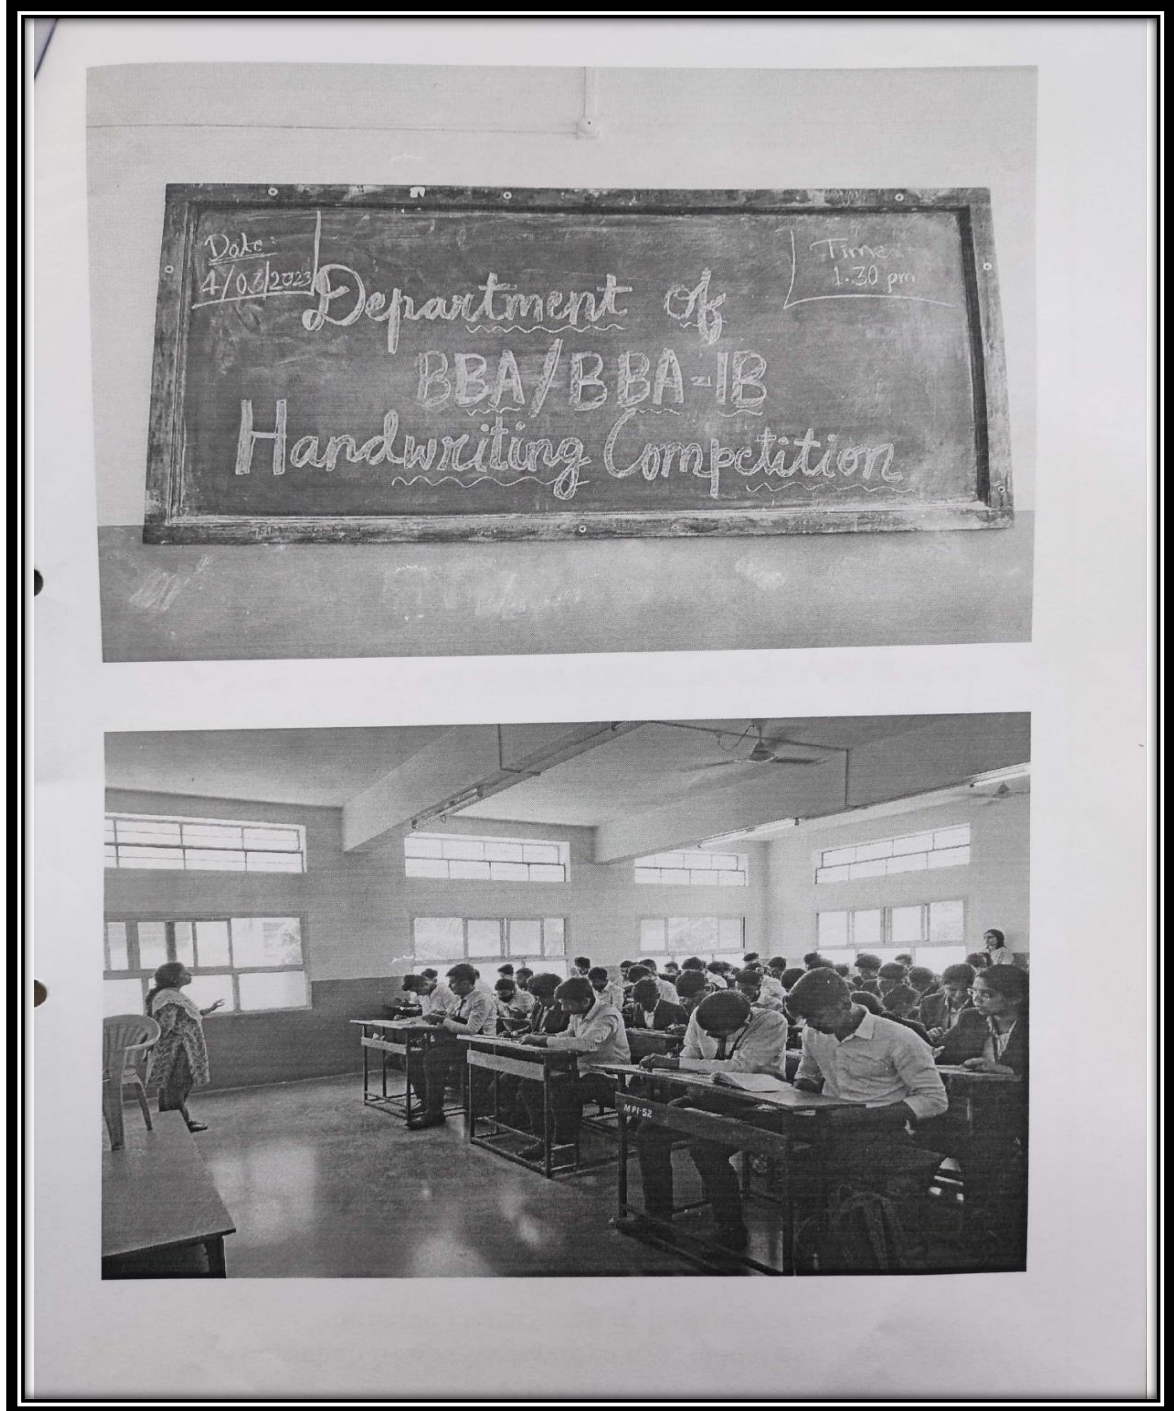 Date:
4/03/2023
Time:
1.30 pm
Department of
BBA/BBA-IB
Handwriting Competition
MPI-52